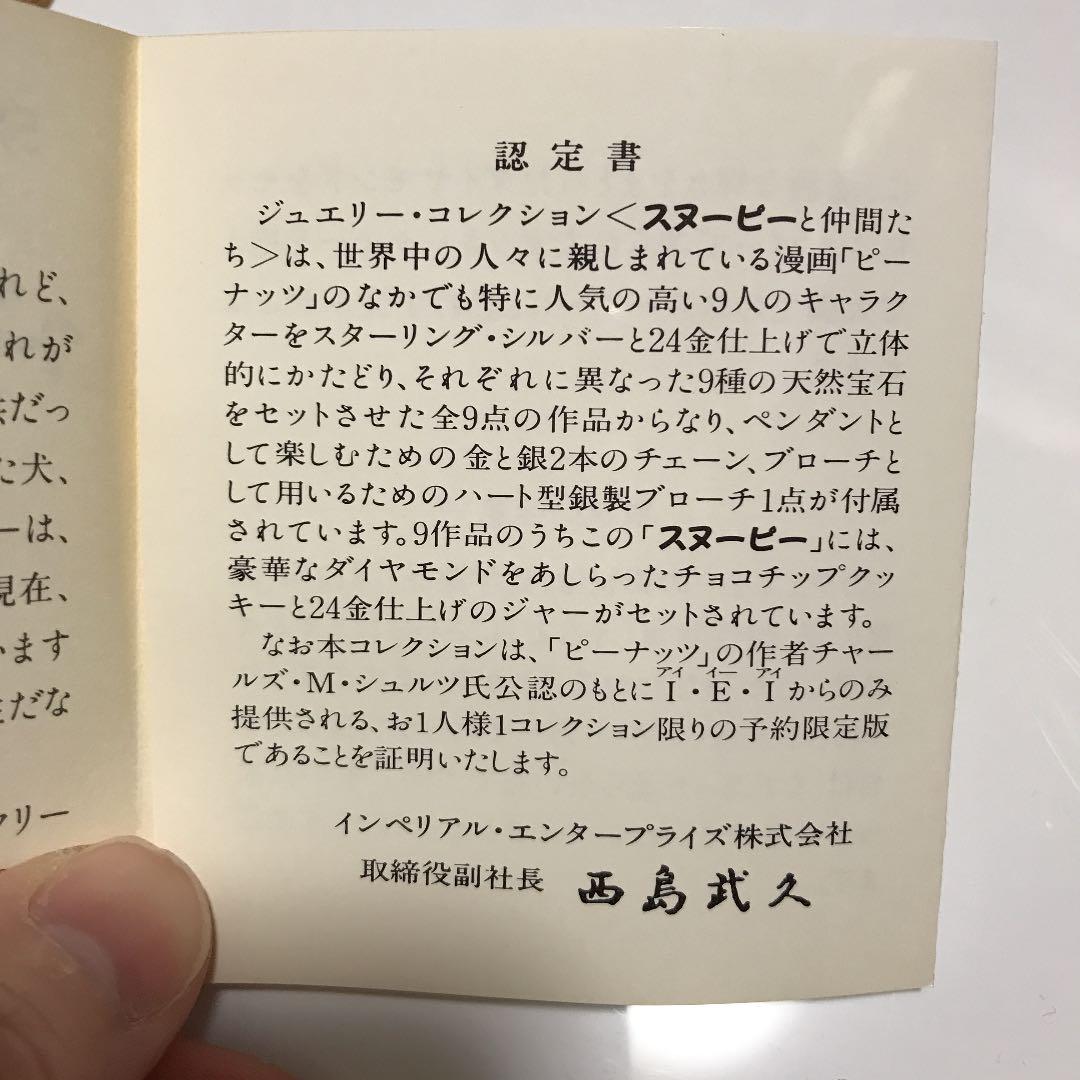 認定書
ジュエリー・コレクション＜スヌーピーと仲間た
ち＞は、世界中の人々に親しまれている漫画「ピー
ナッツ」のなかでも特に人気の高い9人のキャラク
ターをスターリング・シルバーと24金仕上げで立体
的にかたどり、それぞれに異なった9種の天然宝石
をセットさせた全9点の作品からなり、ペンダントと
して楽しむための金と銀2本のチェーン、ブローチと
して用いるためのハート型銀製ブローチ1点が付属
されています。9作品のうちこの「スヌーピー」には、
豪華なダイヤモンドをあしらったチョコチップクッ
キーと24金仕上げのジャーがセットされています。
なお本コレクションは、「ピーナッツ」の作者チャー
アイ イー アイ
ルズ・M・シュルツ氏公認のもとにI・E・Iからのみ
提供される、お1人様1コレクション限りの予約限定版
であることを証明いたします。
インペリアル・エンタープライズ株式会社
取締役副社長 西島武久
れど、
れが
だっ
た犬、
ーは、
現在、
います
だな
リー